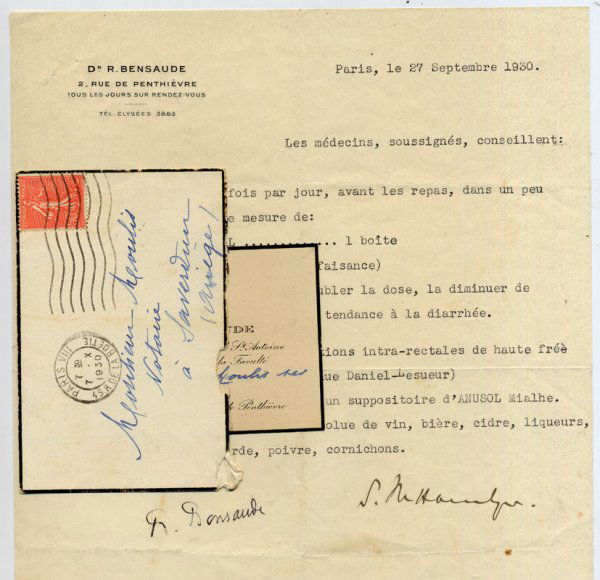 Dʳ R. BENSAUDE
2, RUE DE PENTHIÈVRE
TOUS LES JOURS SUR RENDEZ-VOUS
TÉL. ÉLYSÉES 38.63
Paris, le 27 Septembre 1930.
Les médecins, soussignés, conseillent:
fois par jour, avant les repas, dans un peu
e mesure de:
L ............ 1 boîte
faisance)
bler la dose, la diminuer de
tendance à la diarrhée.
tions intra-rectales de haute fré
ue Daniel-Lesueur)
un suppositoire d'ANUSOL Mialhe.
olue de vin, bière, cidre, liqueurs,
rde, poivre, cornichons.
R. Bensaude
Monsieur Moulis
Notaire
à Saverdun
(Ariège)
PARIS VIII
7 - X
1930
45 R. DE LA BOETIE
UDE
St Antoine
la Faculté
Moulis ses
de Penthièvre